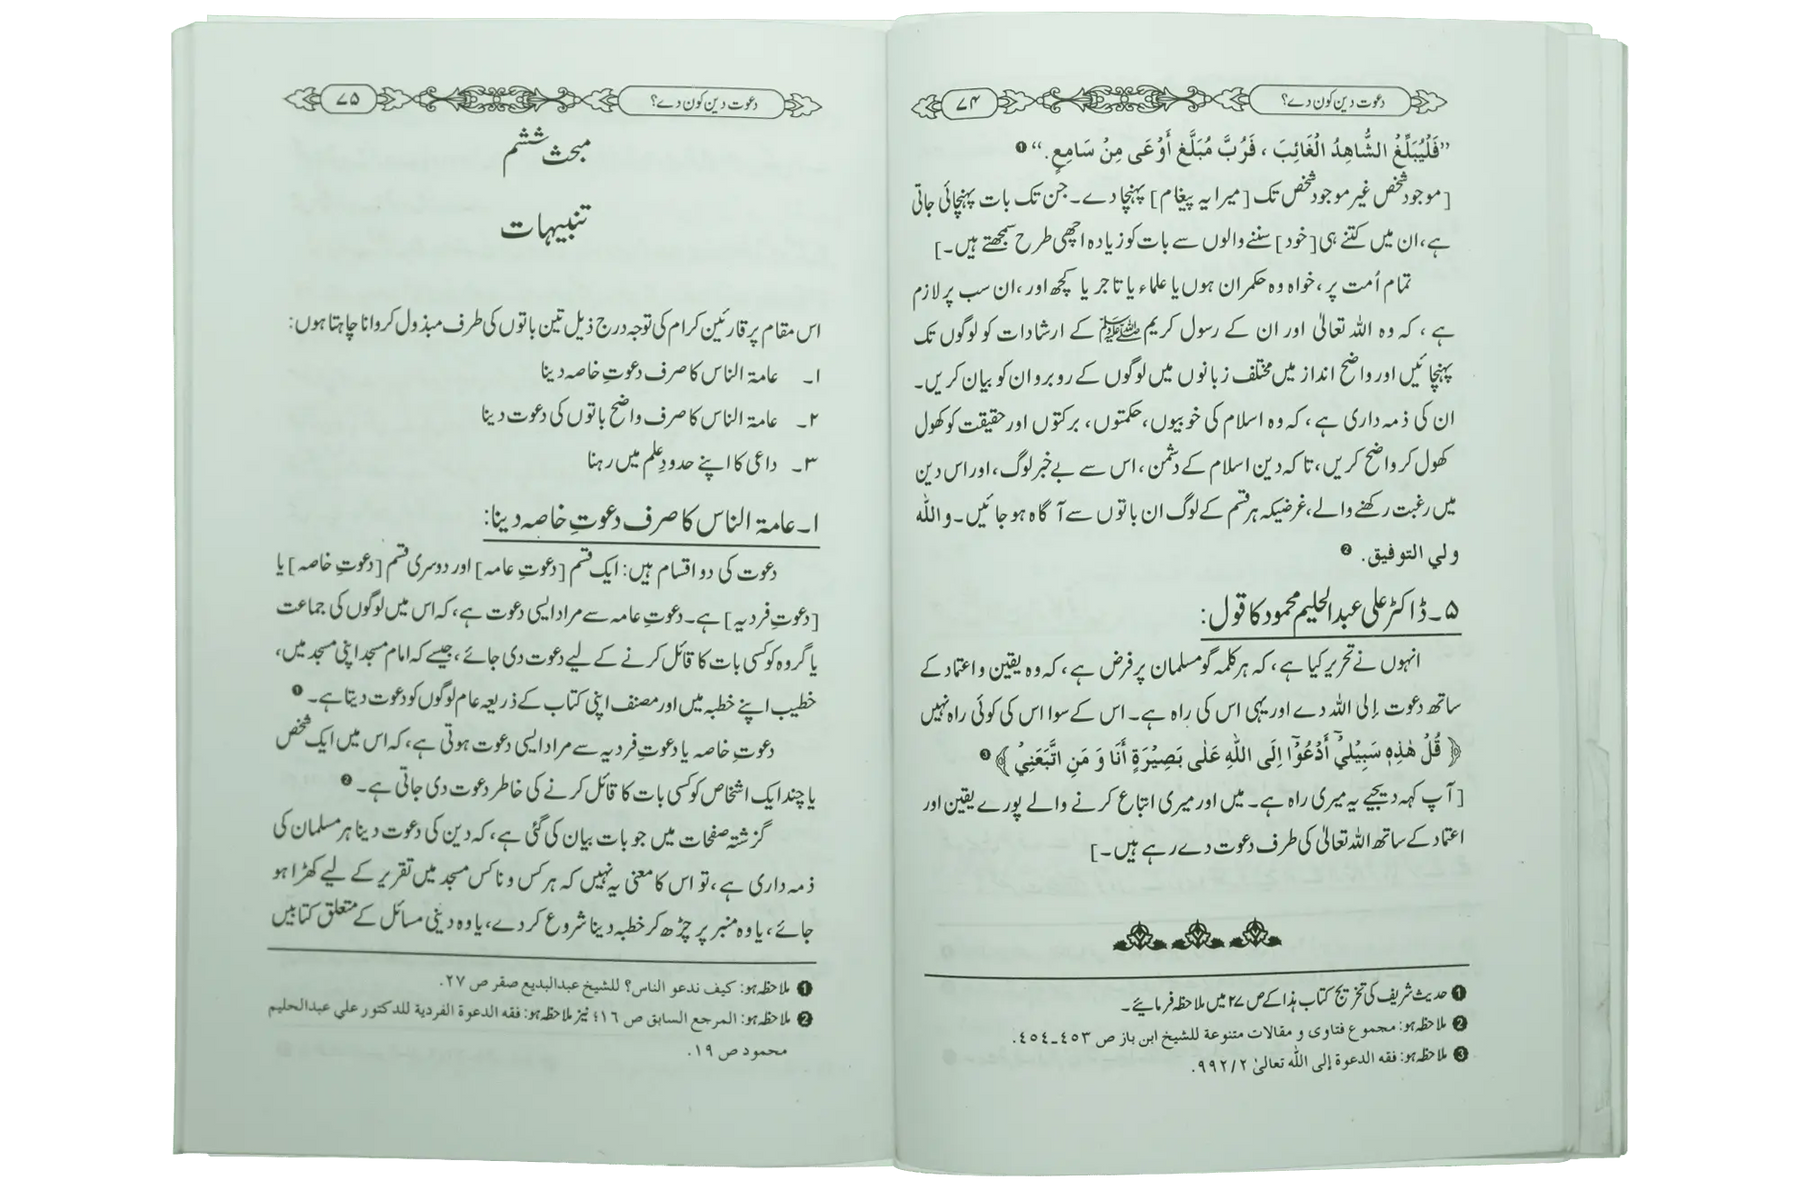 دعوت دین کون دے؟
۷۴
”فَلْيُبَلِّغْ الشَّاهِدُ الْغَائِبَ ، فَرُبَّ مُبَلَّغٍ أَوْعَى مِنْ سَامِعٍ.“ ❶
[موجود شخص غیر موجود شخص تک [میرا یہ پیغام] پہنچا دے۔ جن تک بات پہنچائی جاتی
ہے، ان میں کتنے ہی [خود] سننے والوں سے بات کو زیادہ اچھی طرح سمجھتے ہیں۔]
تمام اُمت پر، خواہ وہ حکمران ہوں یا علماء یا تاجر یا کچھ اور، ان سب پر لازم
ہے، کہ وہ اللہ تعالیٰ اور ان کے رسول کریم ﷺ کے ارشادات کو لوگوں تک
پہنچائیں اور واضح انداز میں مختلف زبانوں میں لوگوں کے روبرو ان کو بیان کریں۔
ان کی ذمہ داری ہے، کہ وہ اسلام کی خوبیوں، حکمتوں، برکتوں اور حقیقت کو کھول
کھول کر واضح کریں، تاکہ دین اسلام کے دشمن، اس سے بے خبر لوگ، اور اس دین
میں رغبت رکھنے والے، غرضیکہ ہر قسم کے لوگ ان باتوں سے آگاہ ہو جائیں۔ واللّٰہ
ولي التوفيق. ❷
۵۔ ڈاکٹر علی عبدالحلیم محمود کا قول:
انہوں نے تحریر کیا ہے، کہ ہر کلمہ گو مسلمان پر فرض ہے، کہ وہ یقین و اعتماد کے
ساتھ دعوت إلی اللہ دے اور یہی اس کی راہ ہے۔ اس کے سوا اس کی کوئی راہ نہیں
﴿ قُلْ هٰذِهٖ سَبِيْلِيْٓ أَدْعُوْٓا اِلَى اللّٰهِ عَلٰى بَصِيْرَةٍ أَنَا وَ مَنِ اتَّبَعَنِيْ ﴾ ❸
[آپ کہہ دیجیے یہ میری راہ ہے۔ میں اور میری اتباع کرنے والے پورے یقین اور
اعتماد کے ساتھ اللہ تعالیٰ کی طرف دعوت دے رہے ہیں۔]
❶ حدیث شریف کی تخریج کتاب ہذا کے ص ۲۷ میں ملاحظہ فرمائیے۔
❷ ملاحظہ ہو: مجموع فتاوى و مقالات متنوعة للشيخ ابن باز ص ٤٥٣ـ٤٥٤.
❸ ملاحظہ ہو: فقه الدعوة إلى اللّٰه تعالىٰ ٩٩٢/٢.
دعوت دین کون دے؟
۷۵
مبحث ششم
تنبیہات
اس مقام پر قارئین کرام کی توجہ درج ذیل تین باتوں کی طرف مبذول کروانا چاہتا ہوں:
۱۔ عامۃ الناس کا صرف دعوتِ خاصہ دینا
۲۔ عامۃ الناس کا صرف واضح باتوں کی دعوت دینا
۳۔ داعی کا اپنے حدودِ علم میں رہنا
۱۔ عامۃ الناس کا صرف دعوتِ خاصہ دینا:
دعوت کی دو اقسام ہیں: ایک قسم [دعوتِ عامہ] اور دوسری قسم [دعوتِ خاصہ] یا
[دعوتِ فردیہ] ہے۔ دعوتِ عامہ سے مراد ایسی دعوت ہے، کہ اس میں لوگوں کی جماعت
یا گروہ کو کسی بات کا قائل کرنے کے لیے دعوت دی جائے، جیسے کہ امام مسجد اپنی مسجد میں،
خطیب اپنے خطبہ میں اور مصنف اپنی کتاب کے ذریعہ عام لوگوں کو دعوت دیتا ہے۔ ❶
دعوتِ خاصہ یا دعوتِ فردیہ سے مراد ایسی دعوت ہوتی ہے، کہ اس میں ایک شخص
یا چند ایک اشخاص کو کسی بات کا قائل کرنے کی خاطر دعوت دی جاتی ہے۔ ❷
گزشتہ صفحات میں جو بات بیان کی گئی ہے، کہ دین کی دعوت دینا ہر مسلمان کی
ذمہ داری ہے، تو اس کا معنی یہ نہیں کہ ہر کس و ناکس مسجد میں تقریر کے لیے کھڑا ہو
جائے، یا وہ منبر پر چڑھ کر خطبہ دینا شروع کر دے، یا وہ دینی مسائل کے متعلق کتابیں
❶ ملاحظہ ہو: كيف ندعو الناس؟ للشيخ عبدالبديع صقر ص ٢٧.
❷ ملاحظہ ہو: المرجع السابق ص ١٦؛ نیز ملاحظہ ہو: فقه الدعوة الفردية للدكتور علي عبدالحليم
محمود ص ١٩.